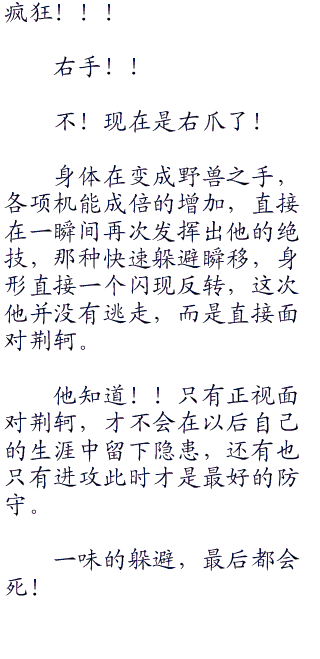 疯狂！！！
右手！！
不！现在是右爪了！
身体在变成野兽之手，
各项机能成倍的增加，直接
在一瞬间再次发挥出他的绝
技，那种快速躲避瞬移，身
形直接一个闪现反转，这次
他并没有逃走，而是直接面
对荆轲。
他知道！！只有正视面
对荆轲，才不会在以后自己
的生涯中留下隐患，还有也
只有进攻此时才是最好的防
守。
一味的躲避，最后都会
死！